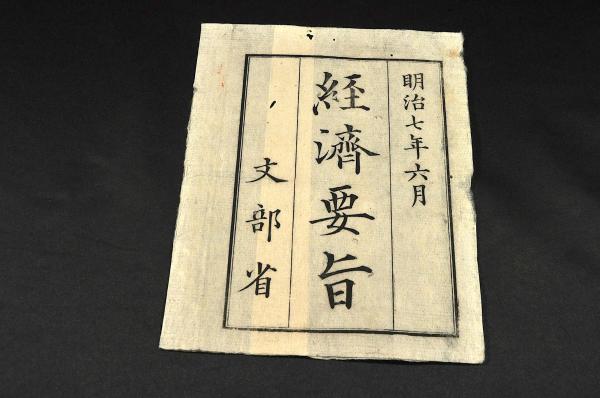 明治七年六月
経濟要旨
文部省